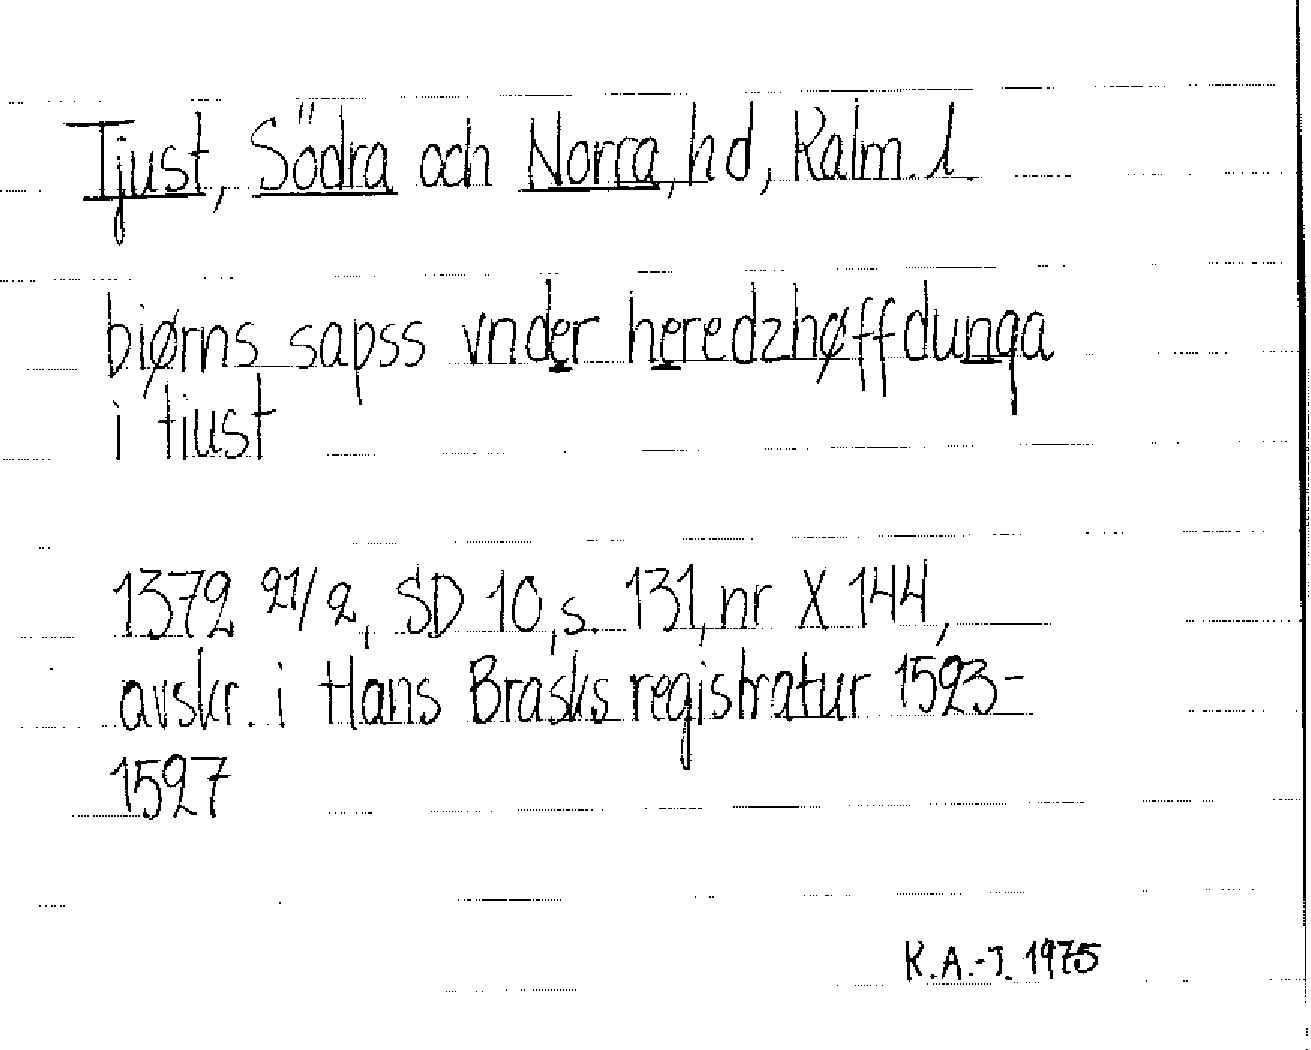 Tjust, Södra och Norra, hd, Kalm. l.
biørns sapss vnder heredzhøffdunga
i tiust
1372 21/2, SD 10, s. 131, nr X 144,
avskr. i Hans Brasks registratur 1523-
1527
K.A.-J. 1975